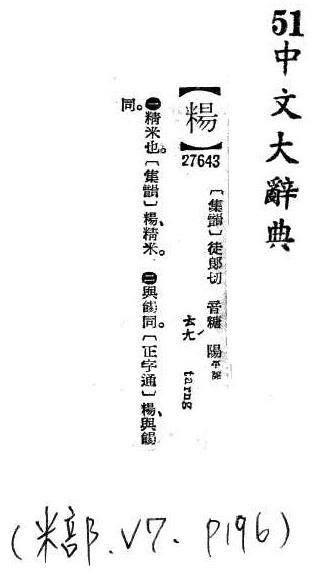 51中文大辭典
【糃】
27643
〔集韻〕徒郎切 音糖 陽平聲
ㄊㄤˊ tarng
㊀精米也。〔集韻〕糃、精米。㊁與餳同。〔正字通〕糃、與餳
同。
(米部、V7、P196)